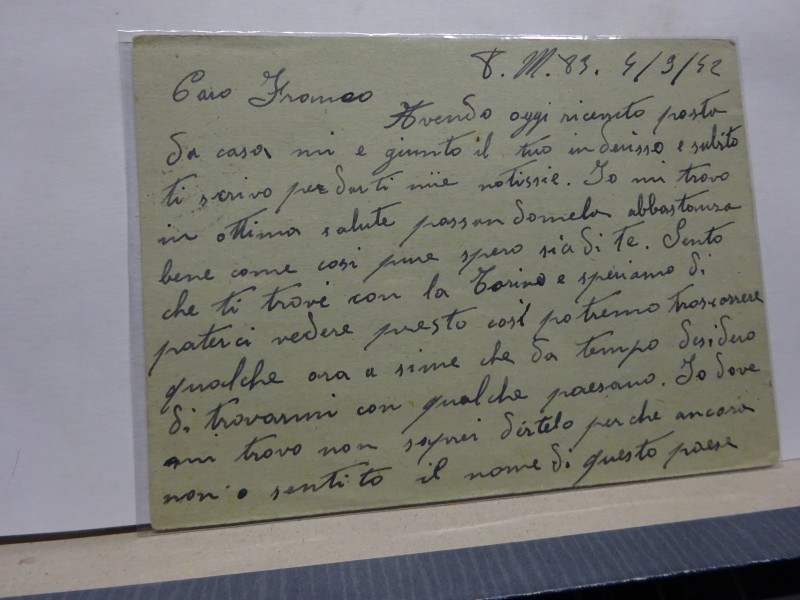 P. M. 83. 4/9/42
Caro Franco
Avendo oggi ricevuto posta
da casa mi e giunto il tuo inderisso e subito
ti scrivo per darti mie notissie. Io mi trovo
in ottima salute passandomela abbastanza
bene come cosi pure spero sia di te. Sento
che ti trovi con la Torino e speriamo di
poterci vedere presto cosi potremo trascorrere
qualche ora a sime che da tempo desidero
di trovarmi con qualche paesano. Io dove
mi trovo non saprei dirtelo perche ancora
non o sentito il nome di questo paese